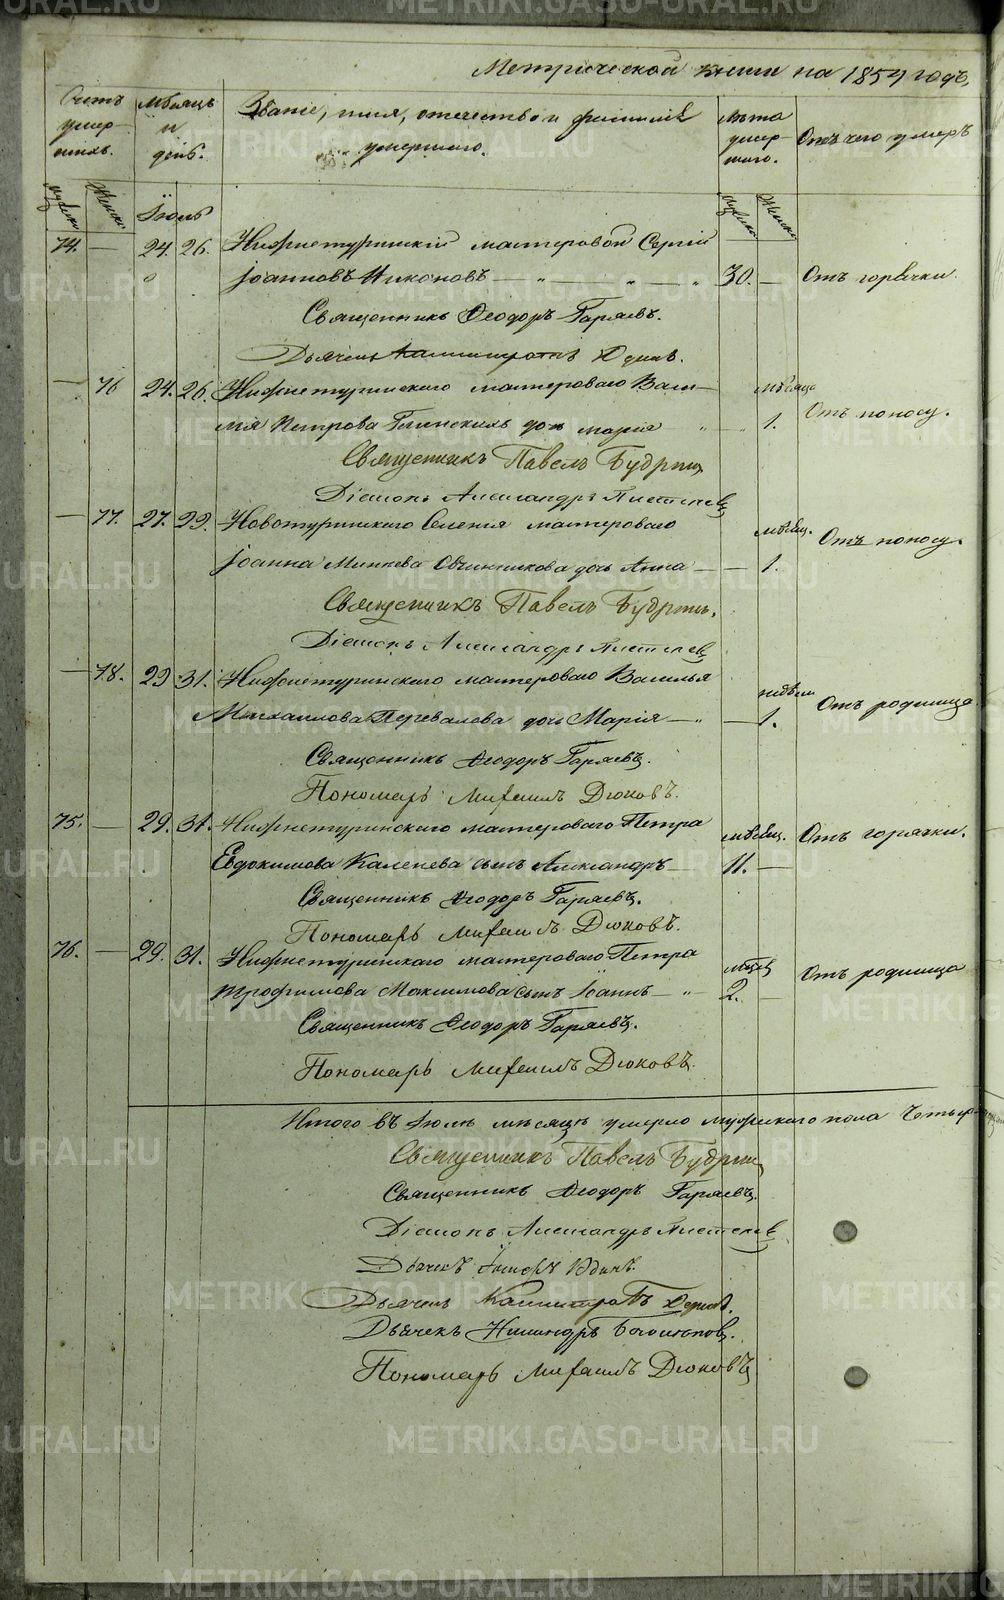 METRIKI.GASO-URAL.RU
Метрической книги на 1857 годъ,
Счетъ умер-шихъ.
Мѣсяцъ и день.
Званіе, имя, отечество и фамилія умершаго.
Лѣта умер-шаго.
Отъ чего умеръ
Мужеска
Женска
Іюль
Мужеска
Женска
74. — 24. 26. Нижнетуринскій мастеровой Сергій
Іоанновъ Никоновъ — 30. — Отъ горячки.
Священникъ Ѳеодоръ Гаряевъ.
Дьячекъ Каллистратъ Юдинъ.
— 76 24. 26. Нижнетуринскаго мастероваго Васи-
лія Петрова Глинскихъ дочь Марія мѣсяца 1. Отъ поносу.
Священникъ Павелъ Будринъ
Діаконъ Александръ
— 77. 27. 29. Новотуринскаго Селенія мастероваго
Іоанна Минѣева Овчинникова дочь Анна — мѣсяц. 1. Отъ поносу.
Священникъ Павелъ Будринъ.
Діаконъ Александръ
— 78. 29 31. Нижнетуринскаго мастероваго Василья
Михаилова Перевалова дочь Марія — недѣли 1. Отъ родимца
Священникъ Ѳеодоръ Гаряевъ.
Пономарь Михаилъ Дюковъ.
75. — 29. 31. Нижнетуринскаго мастероваго Петра
Евдокимова Калепева сынъ Александръ — мѣсяц. 11. — Отъ горячки.
Священникъ Ѳеодоръ Гаряевъ.
Пономарь Михаилъ Дюковъ.
76. — 29. 31. Нижнетуринскаго мастероваго Петра
Трофимова Максимова сынъ Іоаннъ — 2. — Отъ родимца
Священникъ Ѳеодоръ Гаряевъ.
Пономарь Михаилъ Дюковъ.
Итого въ Іюлѣ мѣсяцѣ умерло мужескаго пола Четыр-
Священникъ Павелъ Будринъ
Священникъ Ѳеодоръ Гаряевъ.
Діаконъ Александръ
Дьячекъ Юдинъ.
Дьячекъ Каллистратъ Юдинъ.
Дьячекъ Никандръ
Пономарь Михаилъ Дюковъ